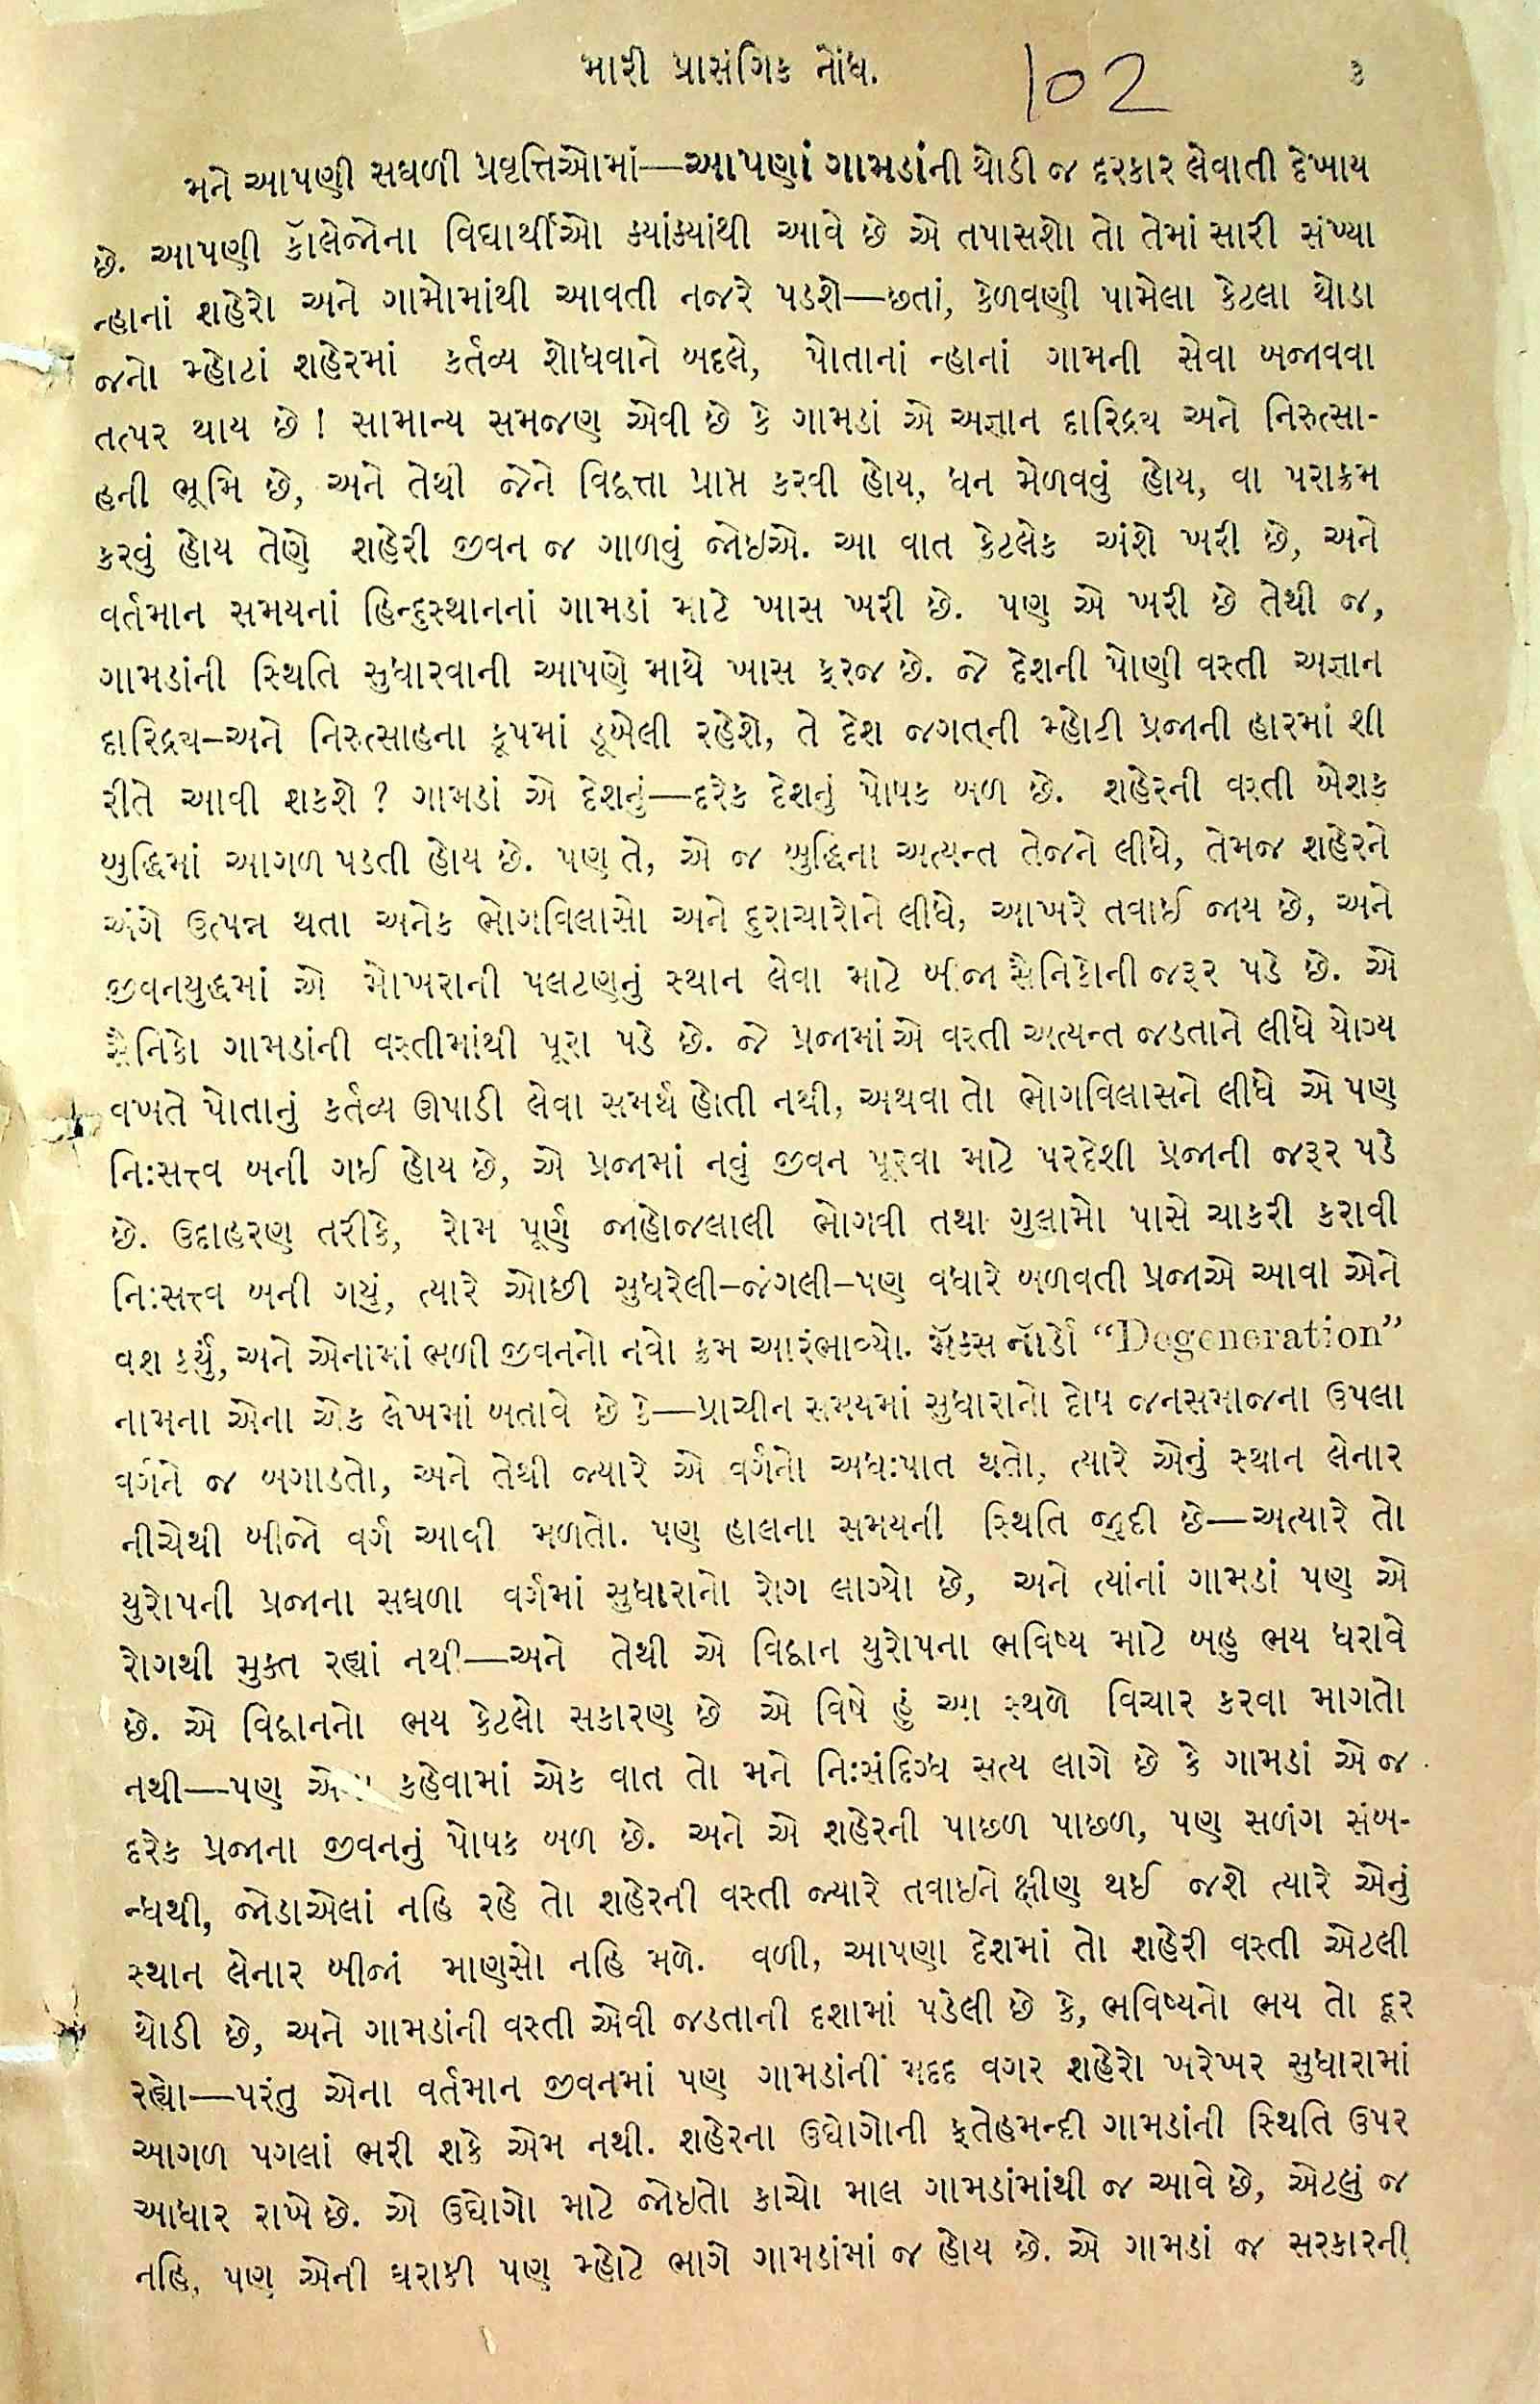 મારી પ્રાસંગિક નોંધ. 102 ૩
મને આપણી સઘળી પ્રવૃત્તિઓમાં—આપણાં ગામડાંની થોડી જ દરકાર લેવાતી દેખાય
છે. આપણી કૉલેજોના વિદ્યાર્થીઓ ક્યાંક્યાંથી આવે છે એ તપાસશો તો તેમાં સારી સંખ્યા
ન્હાનાં શહેરો અને ગામોમાંથી આવતી નજરે પડશે—છતાં, કેળવણી પામેલા કેટલા થોડા
જનો મ્હોટાં શહેરમાં કર્તવ્ય શોધવાને બદલે, પોતાનાં ન્હાનાં ગામની સેવા બજાવવા
તત્પર થાય છે ! સામાન્ય સમજણ એવી છે કે ગામડાં એ અજ્ઞાન દારિદ્રય અને નિરુત્સા-
હની ભૂમિ છે, અને તેથી જેને વિદ્વત્તા પ્રાપ્ત કરવી હોય, ધન મેળવવું હોય, વા પરાક્રમ
કરવું હોય તેણે શહેરી જીવન જ ગાળવું જોઇએ. આ વાત કેટલેક અંશે ખરી છે, અને
વર્તમાન સમયનાં હિન્દુસ્થાનનાં ગામડાં માટે ખાસ ખરી છે. પણ એ ખરી છે તેથી જ,
ગામડાંની સ્થિતિ સુધારવાની આપણે માથે ખાસ ફરજ છે. જે દેશની પોણી વસ્તી અજ્ઞાન
દારિદ્રય–અને નિરુત્સાહના કૂપમાં ડૂબેલી રહેશે, તે દેશ જગત્‌ની મ્હોટી પ્રજાની હારમાં શી
રીતે આવી શકશે ? ગામડાં એ દેશનું—દરેક દેશનું પોષક બળ છે. શહેરની વસ્તી બેશક
બુદ્ધિમાં આગળ પડતી હોય છે. પણ તે, એ જ બુદ્ધિના અત્યન્ત તેજને લીધે, તેમજ શહેરને
અંગે ઉત્પન્ન થતા અનેક ભોગવિલાસો અને દુરાચારોને લીધે, આખરે તવાઈ જાય છે, અને
જીવનયુદ્ધમાં એ મોખરાની પલટણનું સ્થાન લેવા માટે બીજા સૈનિકોની જરૂર પડે છે. એ
સૈનિકો ગામડાંની વસ્તીમાંથી પૂરા પડે છે. જે પ્રજામાં એ વસ્તી અત્યન્ત જડતાને લીધે યોગ્ય
વખતે પોતાનું કર્તવ્ય ઊપાડી લેવા સમર્થ હોતી નથી, અથવા તો ભોગવિલાસને લીધે એ પણ
નિઃસત્ત્વ બની ગઈ હોય છે, એ પ્રજામાં નવું જીવન પૂરવા માટે પરદેશી પ્રજાની જરૂર પડે
છે. ઉદાહરણ તરીકે, રોમ પૂર્ણ જાહોજલાલી ભોગવી તથા ગુલામો પાસે ચાકરી કરાવી
નિઃસત્ત્વ બની ગયું, ત્યારે ઓછી સુધરેલી–જંગલી–પણ વધારે બળવતી પ્રજાએ આવી એને
વશ કર્યું, અને એનામાં ભળી જીવનનો નવો ક્રમ આરંભાવ્યો. મૅક્સ નૉર્ડો “Degeneration”
નામના એના એક લેખમાં બતાવે છે કે—પ્રાચીન સમયમાં સુધારાનો દોષ જનસમાજના ઉપલા
વર્ગને જ બગાડતો, અને તેથી જ્યારે એ વર્ગનો અધઃપાત થતો, ત્યારે એનું સ્થાન લેનાર
નીચેથી બીજો વર્ગ આવી મળતો. પણ હાલના સમયની સ્થિતિ જૂદી છે—અત્યારે તો
યુરોપની પ્રજાના સઘળા વર્ગમાં સુધારાનો રોગ લાગ્યો છે, અને ત્યાંનાં ગામડાં પણ એ
રોગથી મુક્ત રહ્યાં નથી—અને તેથી એ વિદ્વાન યુરોપના ભવિષ્ય માટે બહુ ભય ધરાવે
છે. એ વિદ્વાનનો ભય કેટલો સકારણ છે એ વિષે હું આ સ્થળે વિચાર કરવા માગતો
નથી—પણ કહેવામાં એક વાત તો મને નિઃસંદિગ્ધ સત્ય લાગે છે કે ગામડાં એ જ
દરેક પ્રજાના જીવનનું પોષક બળ છે. અને એ શહેરની પાછળ પાછળ, પણ સળંગ સંબ-
ન્ધથી, જોડાએલાં નહિ રહે તો શહેરની વસ્તી જ્યારે તવાઇને ક્ષીણ થઈ જશે ત્યારે એનું
સ્થાન લેનાર બીજાં માણસો નહિ મળે. વળી, આપણા દેશમાં તો શહેરી વસ્તી એટલી
થોડી છે, અને ગામડાંની વસ્તી એવી જડતાની દશામાં પડેલી છે કે, ભવિષ્યનો ભય તો દૂર
રહ્યો—પરંતુ એના વર્તમાન જીવનમાં પણ ગામડાંની મદદ વગર શહેરો ખરેખર સુધારામાં
આગળ પગલાં ભરી શકે એમ નથી. શહેરના ઉદ્યોગોની ફતેહમન્દી ગામડાંની સ્થિતિ ઉપર
આધાર રાખે છે. એ ઉદ્યોગો માટે જોઇતો કાચો માલ ગામડાંમાંથી જ આવે છે, એટલું જ
નહિ, પણ એની ઘરાકી પણ મ્હોટે ભાગે ગામડાંમાં જ હોય છે. એ ગામડાં જ સરકારની